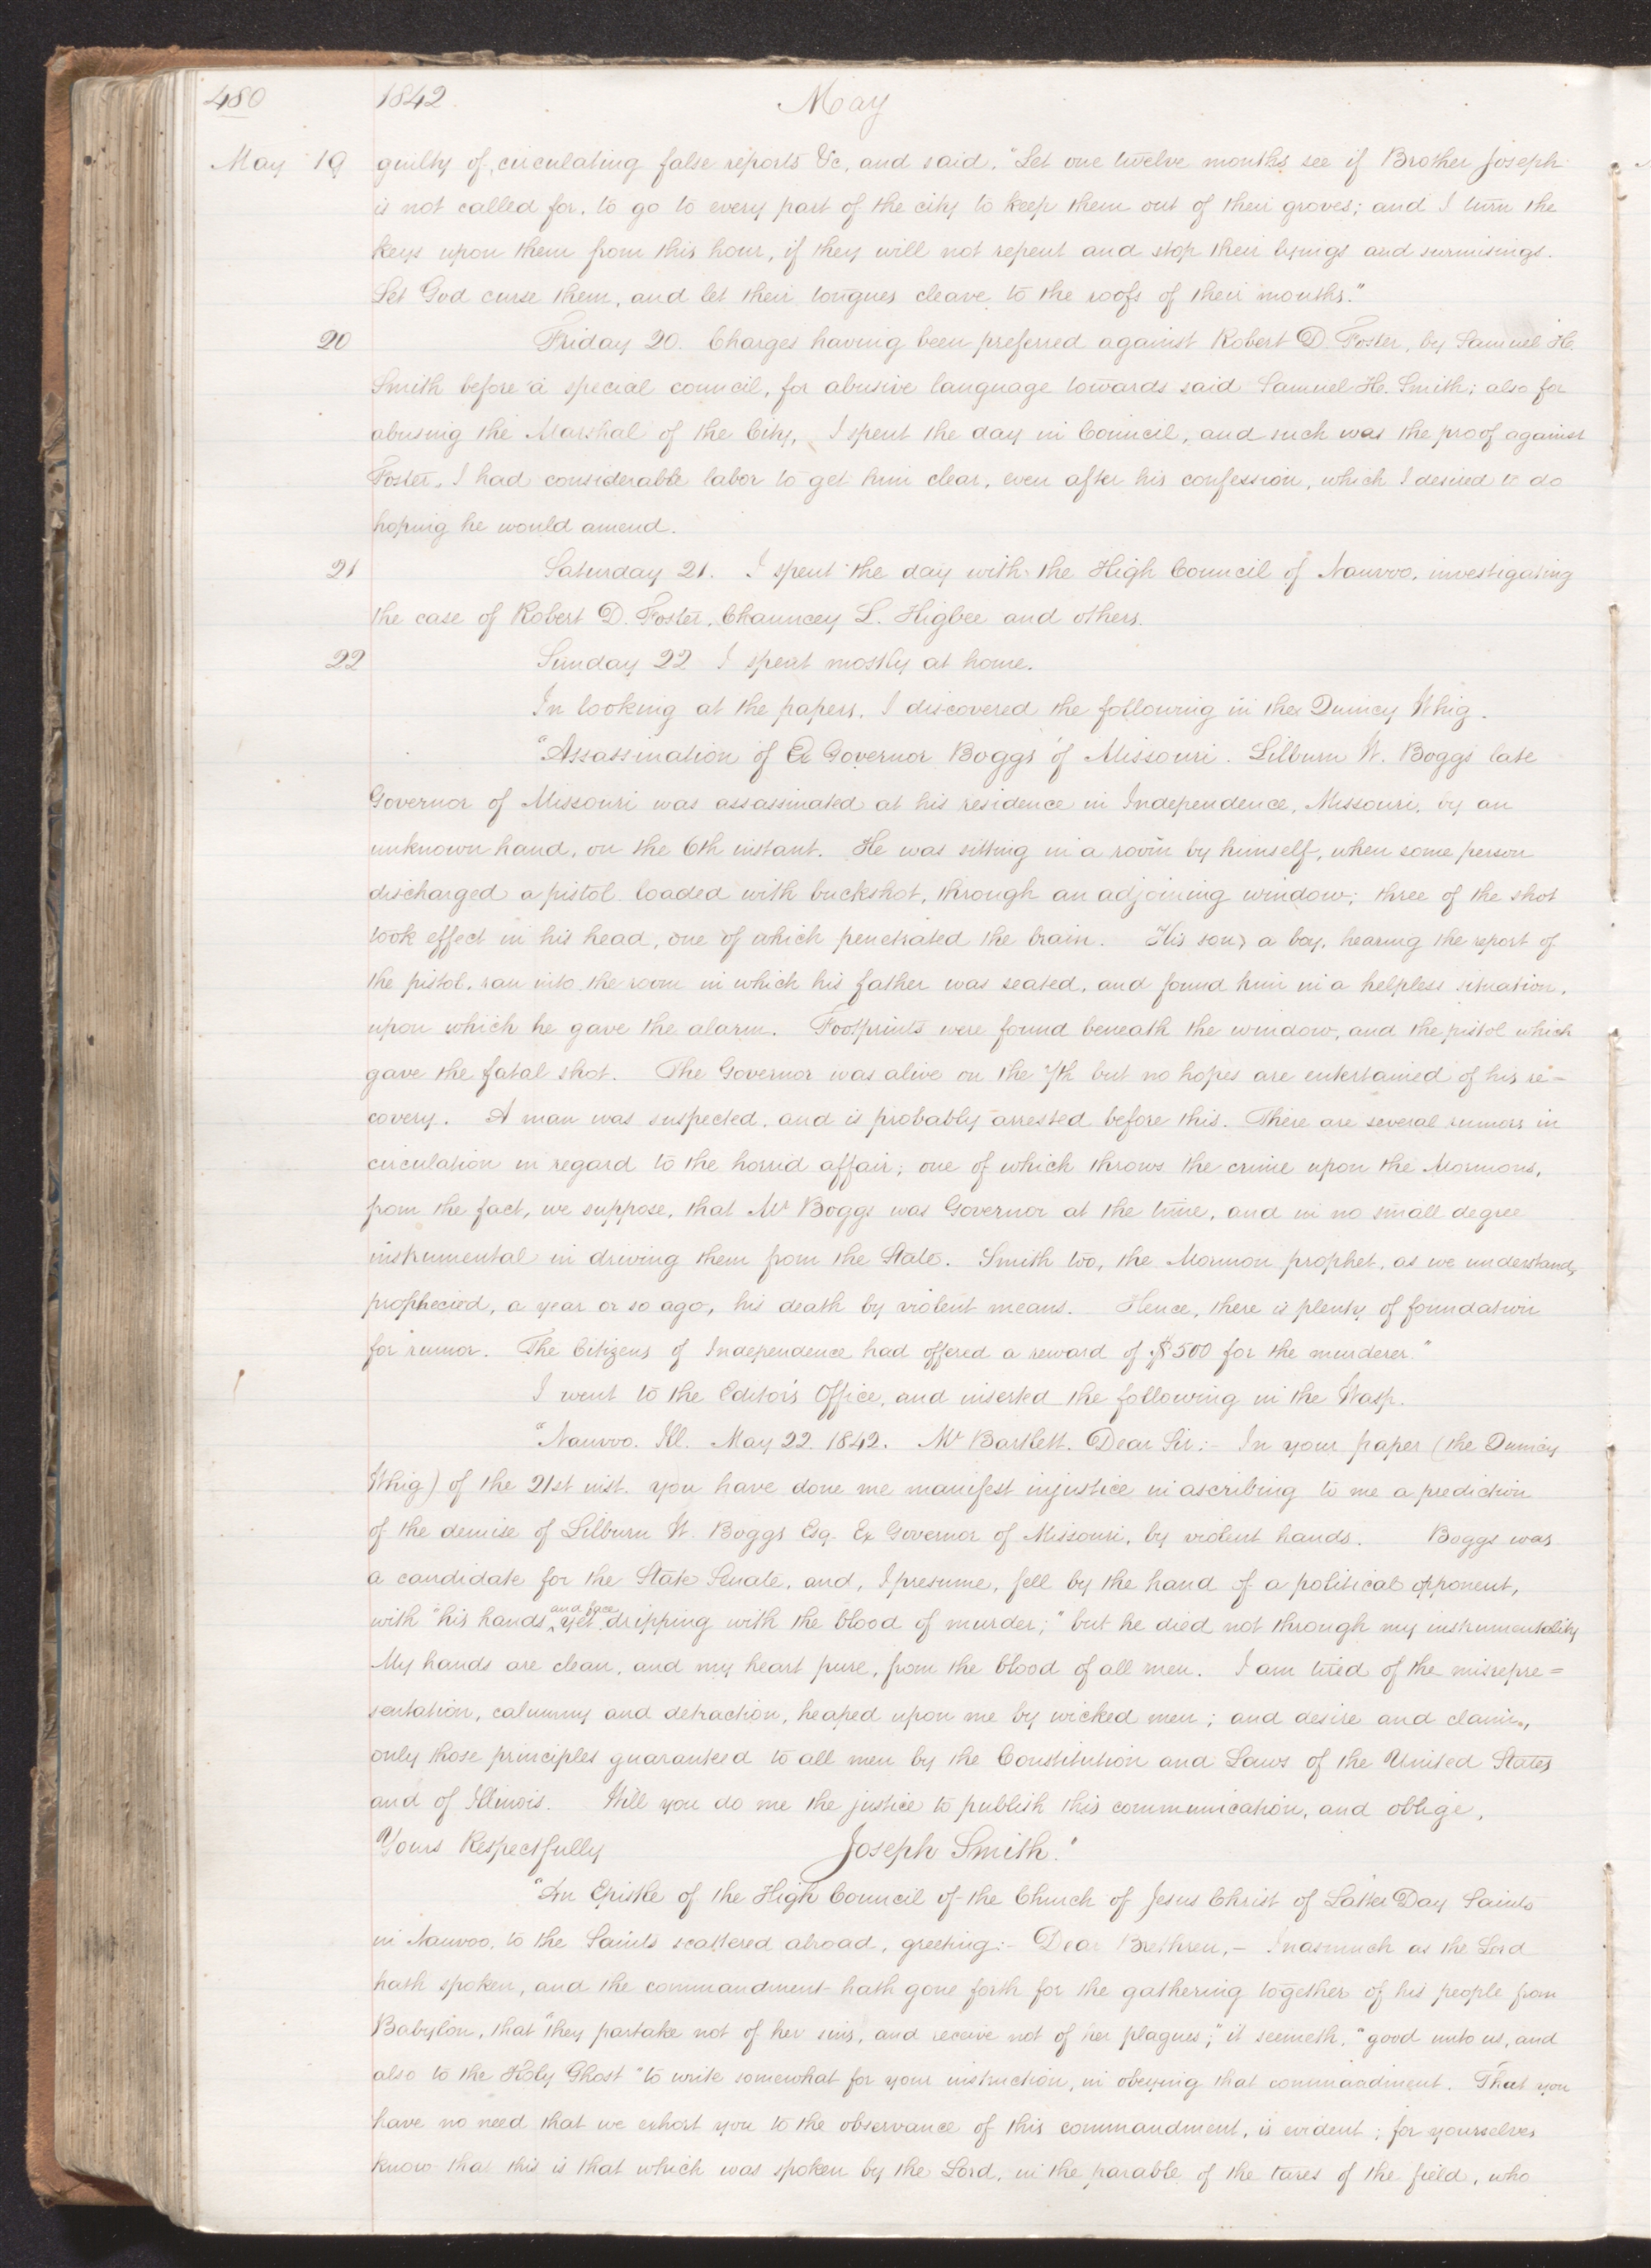 480 1842. May
May 19 guilty of circulating false reports &c, and said, "Let one twelve months see if Brother Joseph
is not called for, to go to every part of the city to keep them out of their groves; and I turn the
keys upon them from this hour, if they will not repent and stop their lyings and surmisings.
Let God curse them, and let their tongues cleave to the roofs of their mouths."
20 Friday 20. Charges having been preferred against Robert D. Foster, by Samuel H.
Smith before a special council, for abusive language towards said Samuel H. Smith; also for
abusing the Marshal of the City, I spent the day in Council, and such was the proof against
Foster, I had considerable labor to get him clear, even after his confession, which I desired to do
hoping he would amend.
21 Saturday 21. I spent the day with the High Council of Nauvoo, investigating
the case of Robert D. Foster, Chauncey L. Higbee and others.
22 Sunday 22 I spent mostly at home.
In looking at the papers, I discovered the following in the Quincy Whig.
"Assassination of Ex Governor Boggs of Missouri. Lilburn W. Boggs late
Governor of Missouri was assassinated at his residence in Independence, Missouri, by an
unknown hand, on the 6th instant. He was sitting in a room by himself, when some person
discharged a pistol loaded with buckshot, through an adjoining window; three of the shot
took effect in his head, one of which penetrated the brain. His son, a boy, hearing the report of
the pistol, ran into the room in which his father was seated, and found him in a helpless situation,
upon which he gave the alarm. Footprints were found beneath the window, and the pistol which
gave the fatal shot. The Governor was alive on the 7th but no hopes are entertained of his re-
covery. A man was suspected, and is probably arrested before this. There are several rumors in
circulation in regard to the horrid affair; one of which throws the crime upon the Mormons,
from the fact, we suppose, that Mr Boggs was Governor at the time, and in no small degree
instrumental in driving them from the State. Smith too, the Mormon prophet, as we understand,
prophecied, a year or so ago, his death by violent means. Hence, there is plenty of foundation
for rumor. The Citizens of Independence had offered a reward of $500 for the murderer."
I went to the Editor's Office, and inserted the following in the Wasp.
"Nauvoo. Ill. May 22 1842. Mr Bartlett. Dear Sir:- In your paper (the Quincy
Whig) of the 21st inst. you have done me manifest injustice in ascribing to me a prediction
of the demise of Lilburn W. Boggs Esq. Ex Governor of Missouri, by violent hands. Boggs was
a candidate for the State Senate, and, I presume, fell by the hand of a political opponent,
with "his hands and face yet dripping with the blood of murder;" but he died not through my instrumentality
My hands are clean, and my heart pure, from the blood of all men. I am tired of the misrepre=
sentation, calumny and detraction, heaped upon me by wicked men; and desire and claim,
only those principles guaranteed to all men by the Constitution and Laws of the United States
and of Illinois. Will you do me the justice to publish this communication, and oblige,
Yours Respectfully Joseph Smith."
"An Epistle of the High Council of the Church of Jesus Christ of Latter Day Saints
in Nauvoo, to the Saints scattered abroad, greeting:- Dear Brethren,- Inasmuch as the Lord
hath spoken, and the commandment hath gone forth for the gathering together of his people from
Babylon, that "they partake not of her sins, and receive not of her plagues;" it seemeth, "good unto us, and
also to the Holy Ghost" to write somewhat for your instruction, in obeying that commandment. That you
have no need that we exhort you to the observance of this commandment, is evident; for yourselves
know that this is that which was spoken by the Lord, in the parable of the tares of the field, who